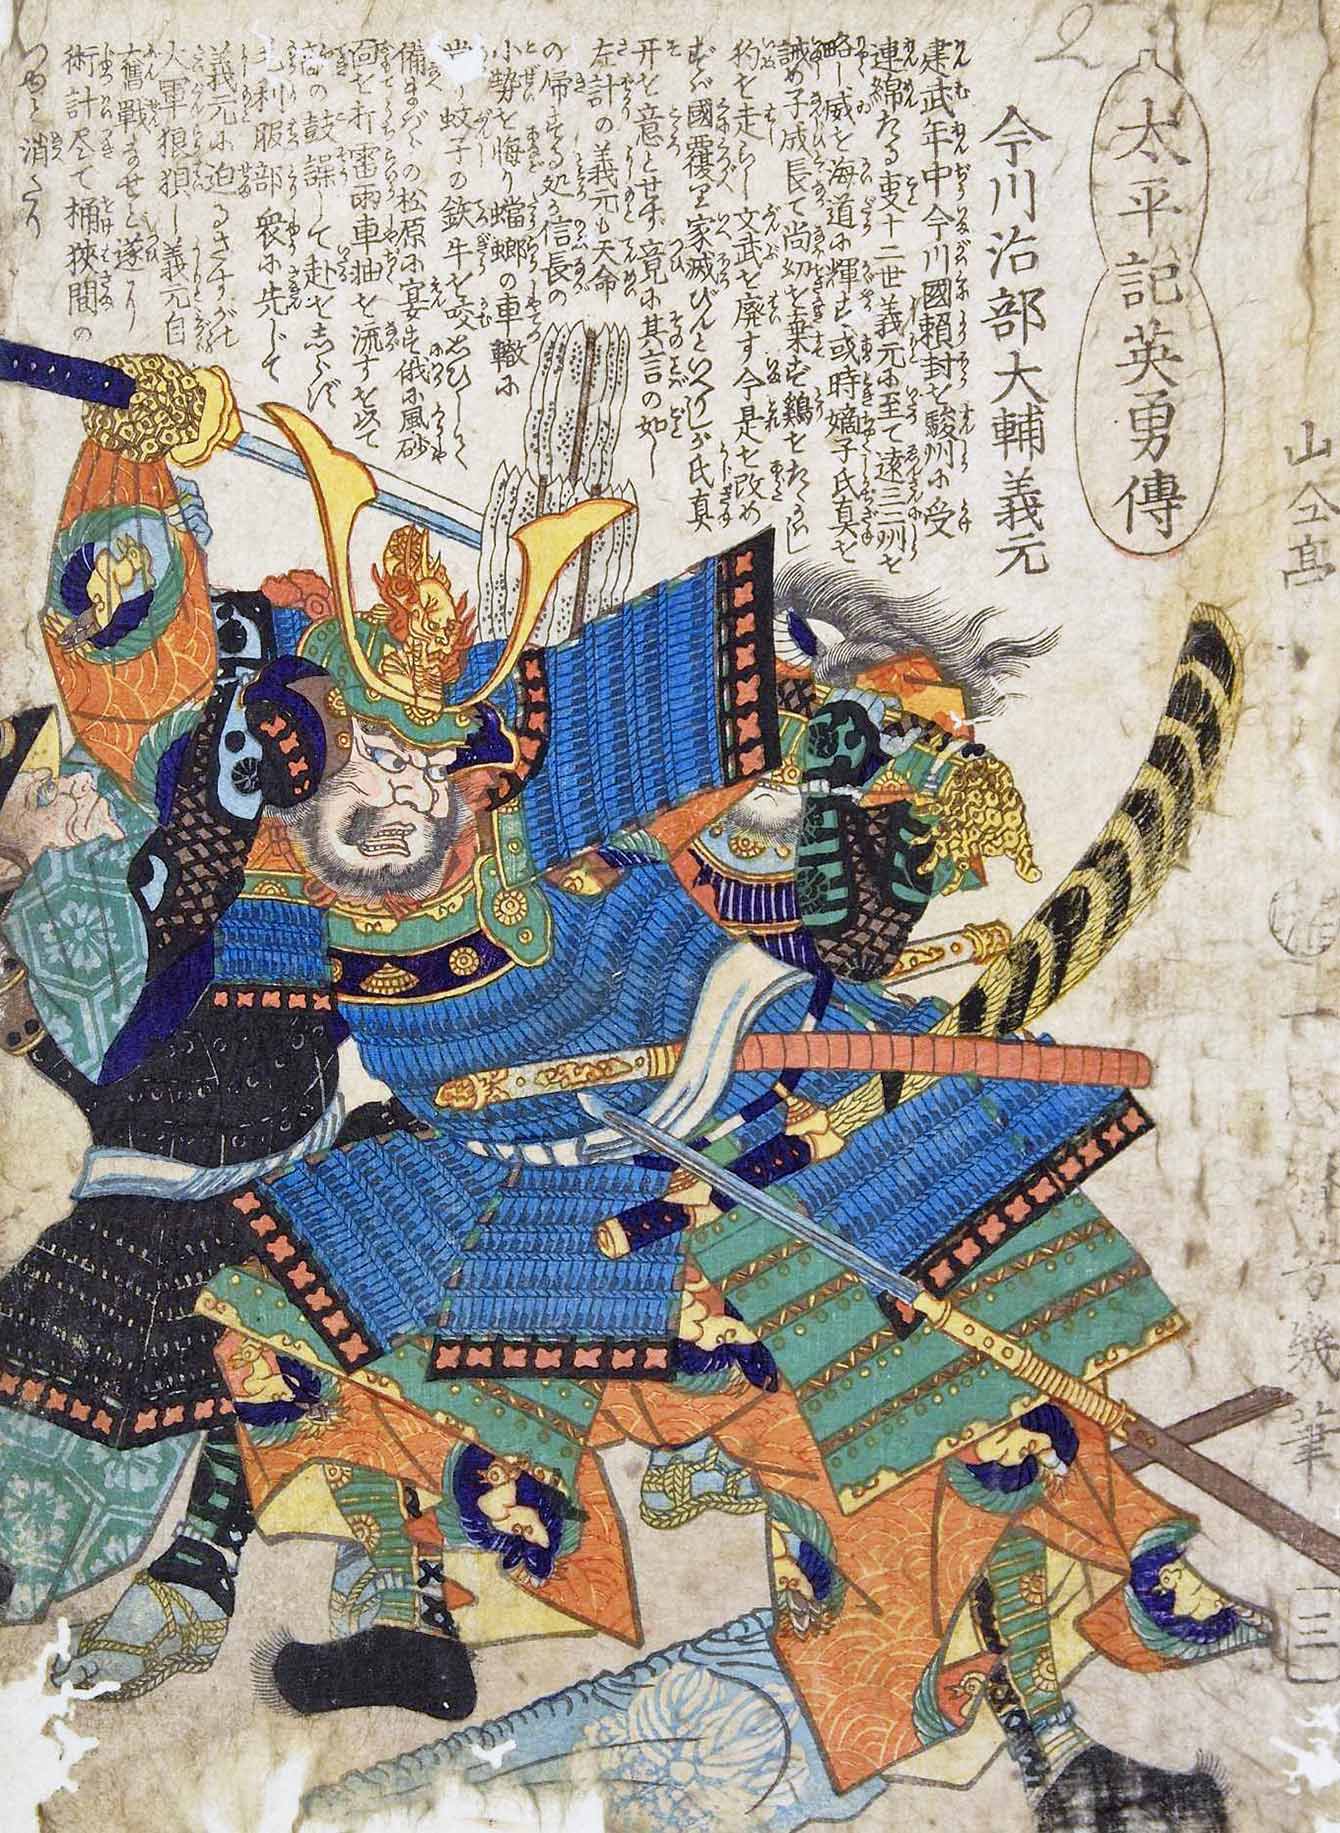 太平記英勇傳
今川治部大輔義元
建武年中今川國頼封を駿州に受
連綿たる事十二世義元に至て遠三二州を
略し威を海道に輝す或時嫡子氏真を
誡め子成長て尚幼を棄ず鶏をたゝかはし
狗を走らし文武を廃す今是を改め
ずば國覆り家滅びんといへりしが氏真
开を意とせず竟に其言の如し
左計の義元も天命
の帰する処か信長の
小勢を悔り蟷螂の車轍に
蚊子の鉄牛を咬
備まばらの松原に宴す俄に風砂
面を打雷雨車軸を流すを以て
敵の鼓譟して赴をしらず
毛利服部衆に先じて
義元に迫るさすがの
大軍狼狽し義元自
奮戰なせど遂に
術計尽て桶狭間の
つゆと消たり
山仝髙
一蕙齋芳幾筆
三